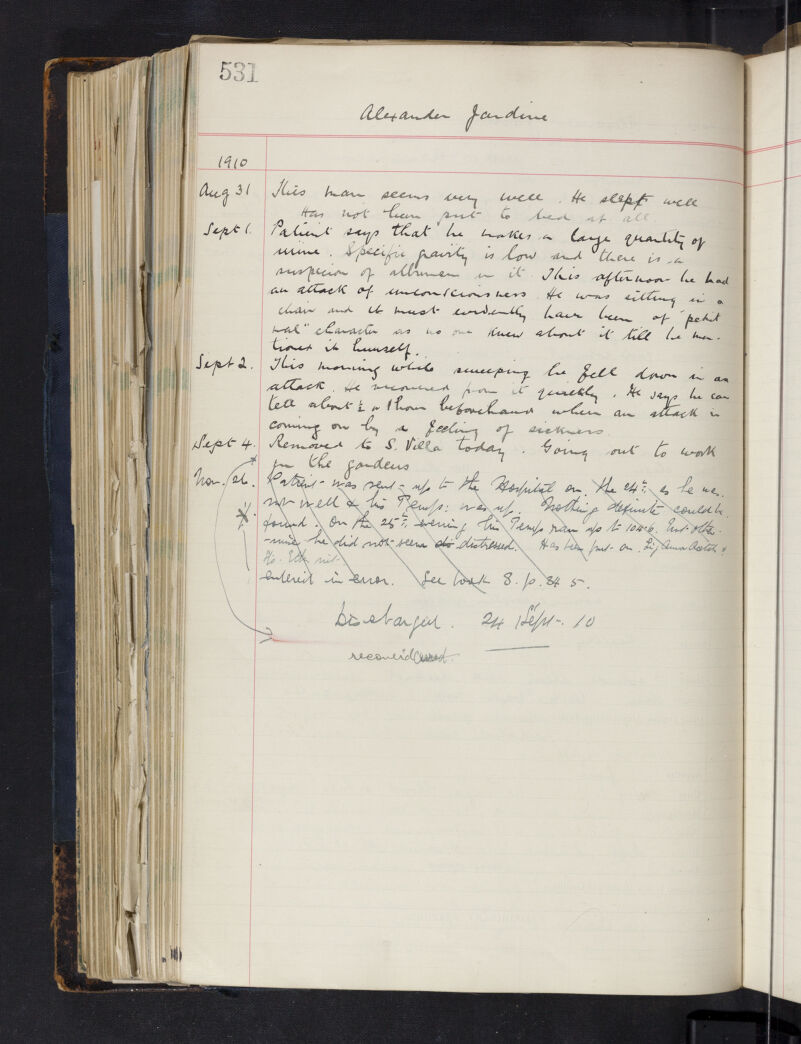 531
Alexander Jardine
1910
Aug 31 This man seems very well. He slept well
Has not been put to bed at all.
Sept 1. Patient says that he makes a large quantity of
urine. Specific gravity is low and there is a
suspicion of albumen in it. This afternoon he had
an attack of unconsciousness. He was sitting in a
chair and it must evidently have been of "petit
mal" character as no one knew about it till he men-
tioned it himself.
Sept 2. This morning while sweeping he fell down in an
attack. He recovered from it quickly. He says he can
tell about ½ or 1 hour beforehand when an attack is
coming on by a feeling of sickness.
Sept 4. Removed to S. Villa today. Going out to work
in the gardens
Nov. 26. Patient was sent up to the Hospital on the 24th, as he was
not well & his Temp: was up. Nothing definite could be
found. On the 25th evening his Temp ran up to but other-
-wise he did not seem do distressed. Has been put on Liq Amm Acetat &
entered in error. See book 8. p. 845.
Discharged. 24 Sept. 10
recovered